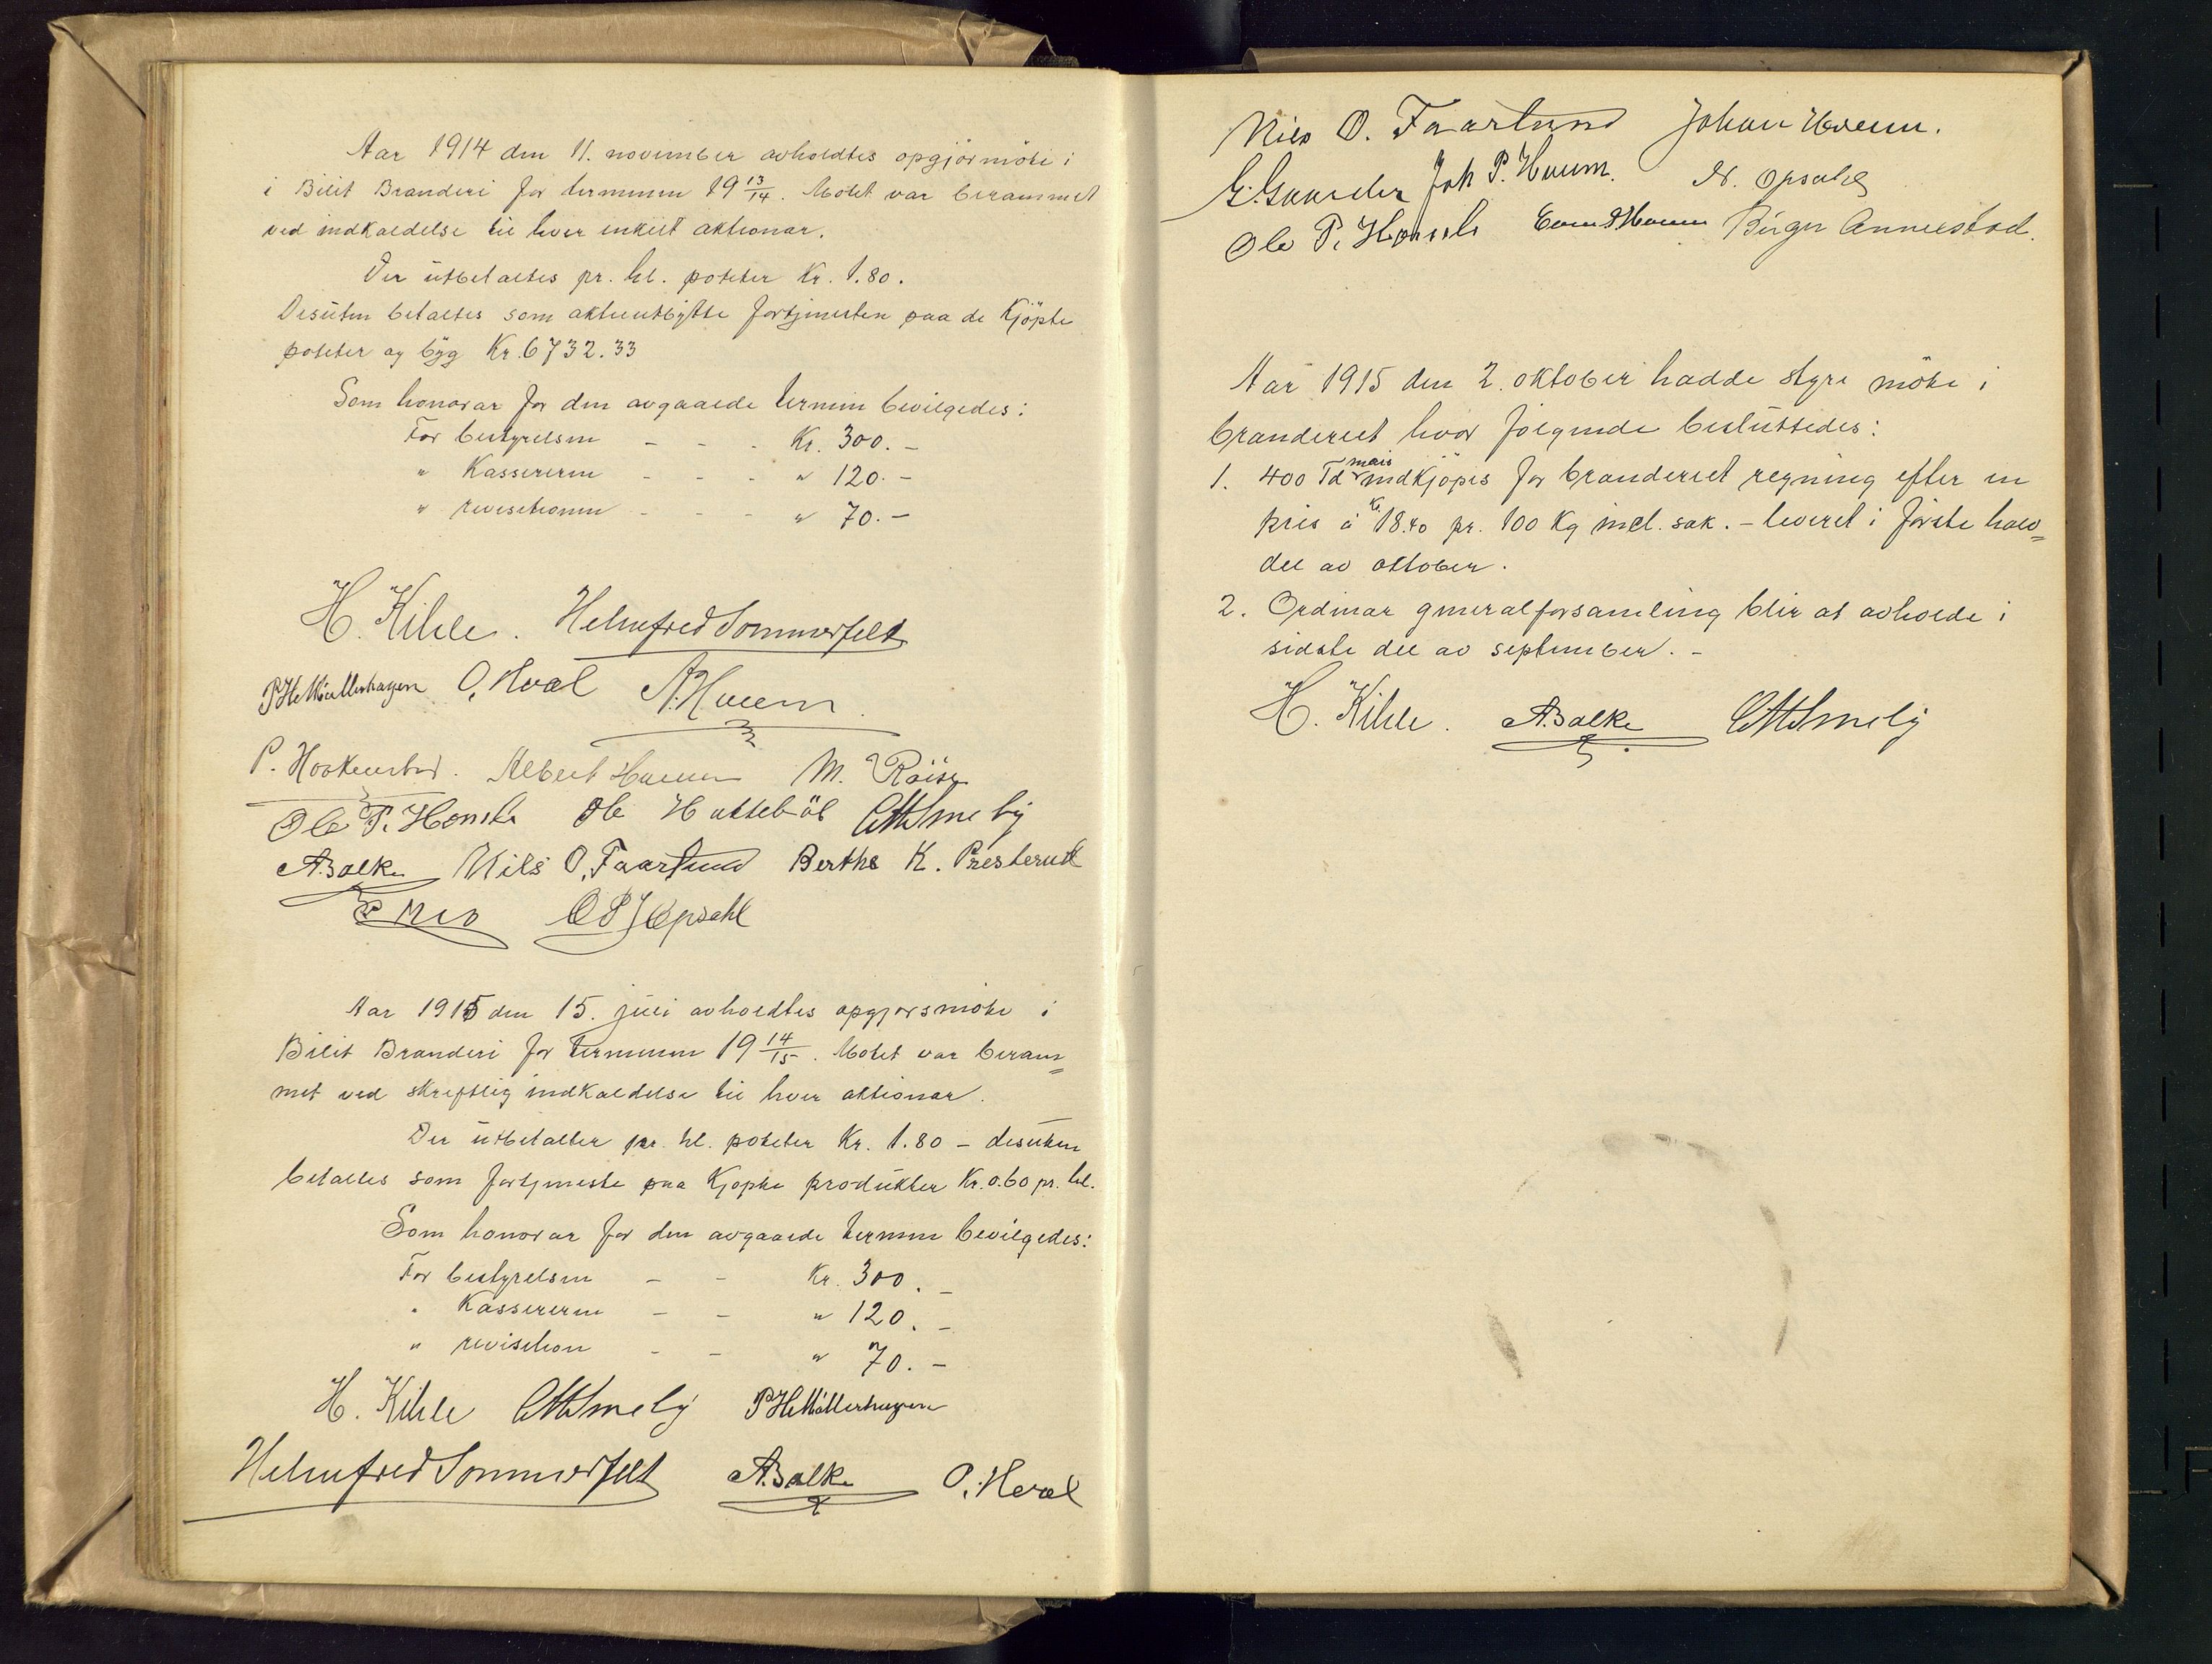 Aar 1914 den 11. november avholdtes opgjörmöte i
i Bilit Brænderi for terminen 19 13/14. Motet var berammet
ved indkaldelse til hver enkelt aktionær.
Der utbetaltes pr. hl. poteter Kr. 1.80.
Desuten betaltes som aktieutbytte fortjenesten paa de Kjöpte
poteter og byg Kr. 6732.33
Som honorar for den avgaaede termin bevilgedes:
For bestyrelsen - - - Kr. 300.-
" Kassereren - - - " 120.-
" revisionen - - - " 70.-
H. Kihle. Helmfred Sommerfelt
P H Müllerhagen O. Hval A. Huem
P. Hockenstad. Albert Huem M. Röise
Ole P. Honsle Ole Hutteböl Smeby
A. Balke Nils O. Faarlund Berthe K. Presterud
Opsahl
Aar 1915 den 15. juli avholdtes opgjorsmöte i
Bilit Brænderi for terminen 19 14/15. Motet var beram=
met ved skriftlig indkaldelse til hver aktionær.
Der utbetalter pr. hl. poteter Kr. 1.80 - desuten
betaltes som fortjeneste paa Kjopte produkter Kr. 0.60 pr. hl.
Som honorar for den avgaaede termin bevilgedes:
For bestyrelsen - - Kr. 300.-
" Kassereren - - " 120.-
" revision - - " 70.-
H. Kihle Smeby P H Müllerhagen
Helmfred Sommerfelt A. Balke O. Hval
Nils O. Faarlund Johan Huem.
G. Gaarder Joh P. Huem. N. Opsahl
Ole P. Honsle Huem Birger Annestad.
Aar 1915 den 2. oktober hadde styre möte i
brænderiet hvor folgende besluttedes:
1. 400 Td mais indkjöpes for brænderiet regning efter en
pris á Kr. 18.40 pr. 100 Kg incl. sæk. - leveret i förste halv=
del av oktober.
2. Ordinær generalforsamling blir at avholde i
sidste del av september. -
H. Kihle. A. Balke Smeby